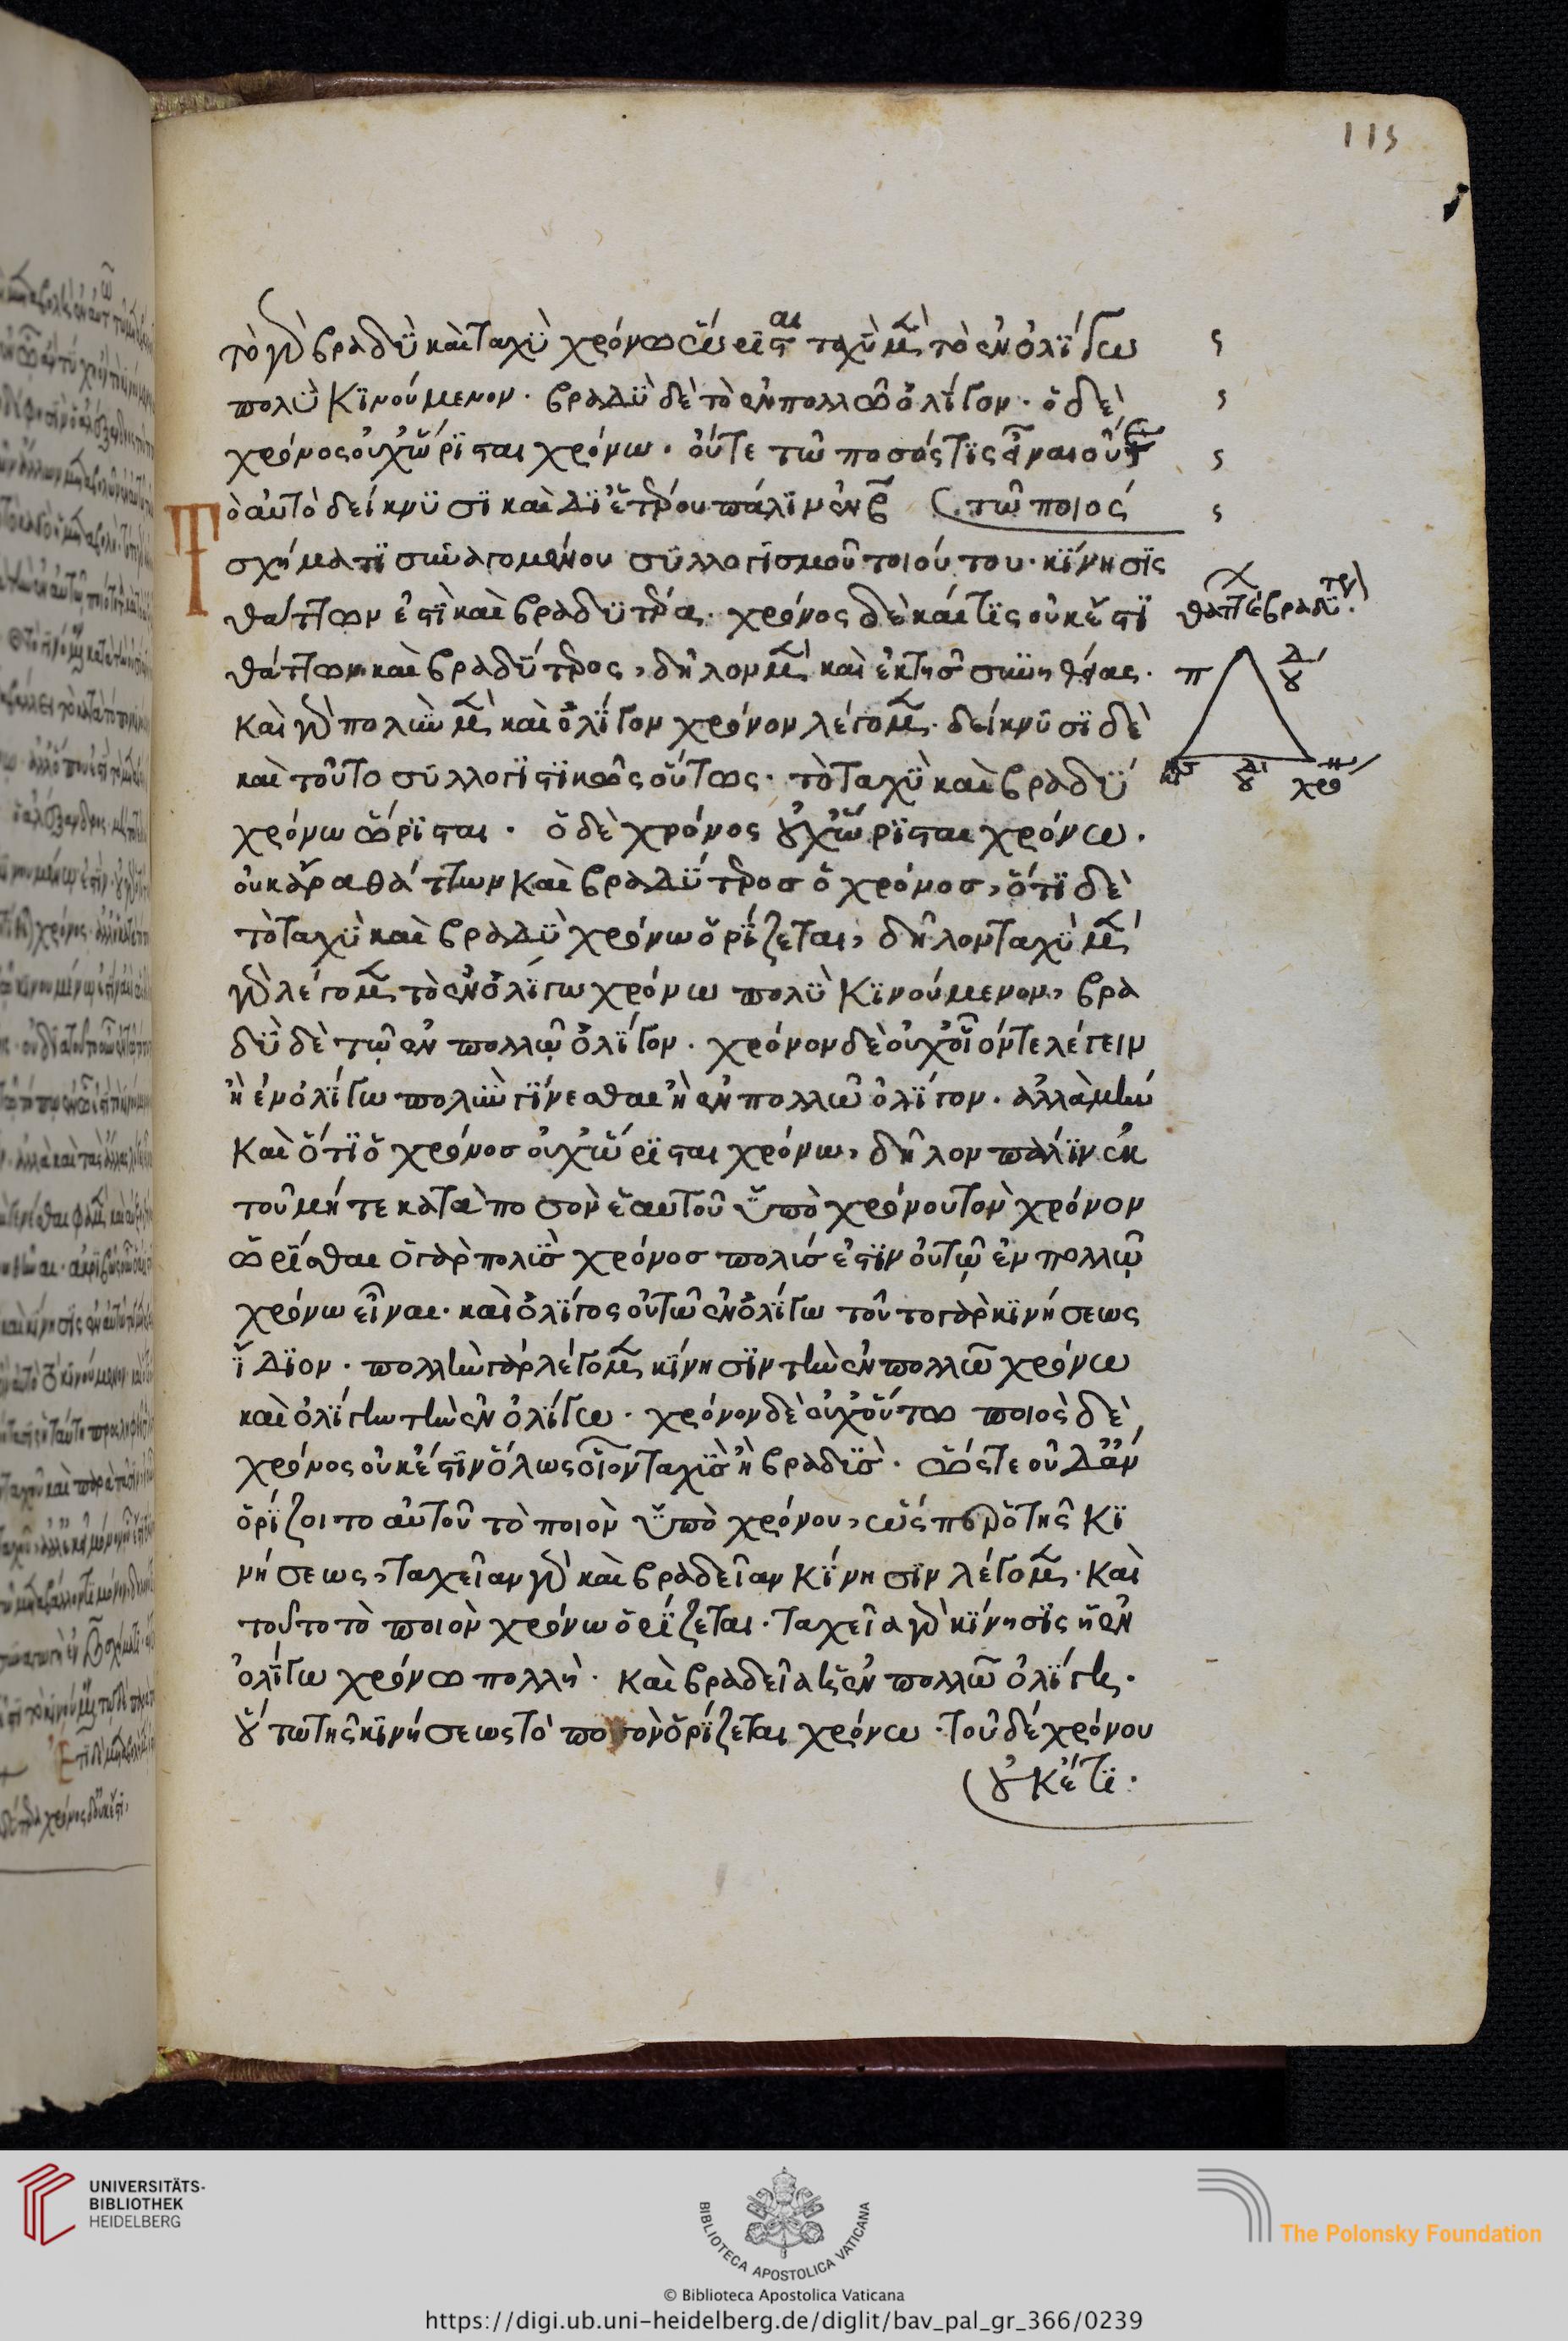 115
τὸ γὰρ βραδὺ καὶ ταχὺ χρόνω ὥρισται ταχὺ μὲν τὸ ἐν ὀλίγω
πολὺ κινούμενον· βραδὺ δὲ τὸ ἐν πολλῶ ὀλίγον· ὁ δὲ
χρόνος οὐχ ὥρισται χρόνω· οὔτε τῶ ποσός τις εἶναι οὔτε
τῶ ποιός
Τὸ αὐτὸ δείκνυσι καὶ δι' ἑτέρου πάλιν ἐν β
σχήματι συναγομένου συλλογισμοῦ τοιούτου· κίνησις
θάττων ἐστὶ καὶ βραδυτέρα· χρόνος δὲ καί τις οὐκ ἔστι
θάττων καὶ βραδύτερος, δῆλον μὲν καὶ ἐκ τῆς συνηθείας·
καὶ γὰρ πολὺν μὲν καὶ ὀλίγον χρόνον λέγομεν· δείκνυσι δὲ
καὶ τοῦτο συλλογιστικῶς οὕτως· τὸ ταχὺ καὶ βραδὺ
χρόνω ὥρισται· ὁ δὲ χρόνος οὐχ ὥρισται χρόνω·
οὐκ ἄρα θάττων καὶ βραδύτερος ὁ χρόνος, ὅτι δὲ
τὸ ταχὺ καὶ βραδὺ χρόνω ὁρίζεται, δῆλον ταχὺ μὲν
γὰρ λέγομεν τὸ ἐν ὀλίγω χρόνω πολὺ κινούμενον, βρα
δὺ δὲ τῷ ἐν πολλῷ ὀλίγον· χρόνον δὲ οὐχ οἷόν τε λέγειν
ἢ ἐν ὀλίγω πολὺν γίνεσθαι ἢ ἐν πολλῶ ὀλίγον· ἀλλὰ μὴν
καὶ ὅτι ὁ χρόνος οὐχ ὥρισται χρόνω, δῆλον πάλιν ἐκ
τοῦ μήτε κατὰ ποσὸν ἑαυτοῦ ὑπὸ χρόνου τὸν χρόνον
ὡρίσθαι ὁ γὰρ πολὺς χρόνος πολύς ἐστιν οὐ τῷ ἐν πολλῷ
χρόνω εἶναι· καὶ ὀλίγος οὐ τῶ ἐν ὀλίγω τοῦτο γὰρ κινήσεως
ἴδιον· πολλὴν γὰρ λέγομεν κίνησιν τὴν ἐν πολλῶ χρόνω
καὶ ὀλίγην τὴν ἐν ὀλίγω· χρόνον δὲ οὐχ οὕτω ποιὸς δὲ
χρόνος οὐκ ἔστιν ὅλως οἷον ταχὺς ἢ βραδύς· ὥστε οὐδ' ἂν
ὁρίζοιτο αὐτοῦ τὸ ποιὸν ὑπὸ χρόνου, ὥσπερ τὸ τῆς κι
νήσεως, ταχεῖαν γὰρ καὶ βραδεῖαν κίνησιν λέγομεν· καὶ
τοῦτο τὸ ποιὸν χρόνω ὁρίζεται· ταχεῖα γὰρ κίνησις ἡ ἐν
ὀλίγω χρόνω πολλή· καὶ βραδεῖα ἡ ἐν πολλῶ ὀλίγη·
οὕτω τῆς κινήσεως τὸ ποσὸν ὁρίζεται χρόνω· τοῦ δὲ χρόνου
οὐκέτι·
UNIVERSITÄTS-
BIBLIOTHEK
HEIDELBERG
BIBLIOTECA APOSTOLICA VATICANA
The Polonsky Foundation
© Biblioteca Apostolica Vaticana
https://digi.ub.uni-heidelberg.de/diglit/bav_pal_gr_366/0239